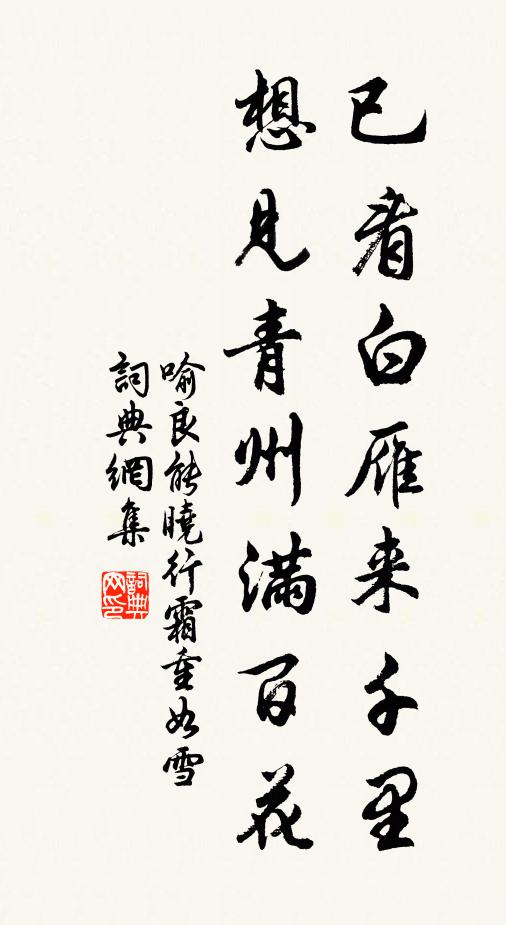 已看白雁来千里
想見青州满百花
喻良能曉行霜重如雪
詞典網集
詞典网印